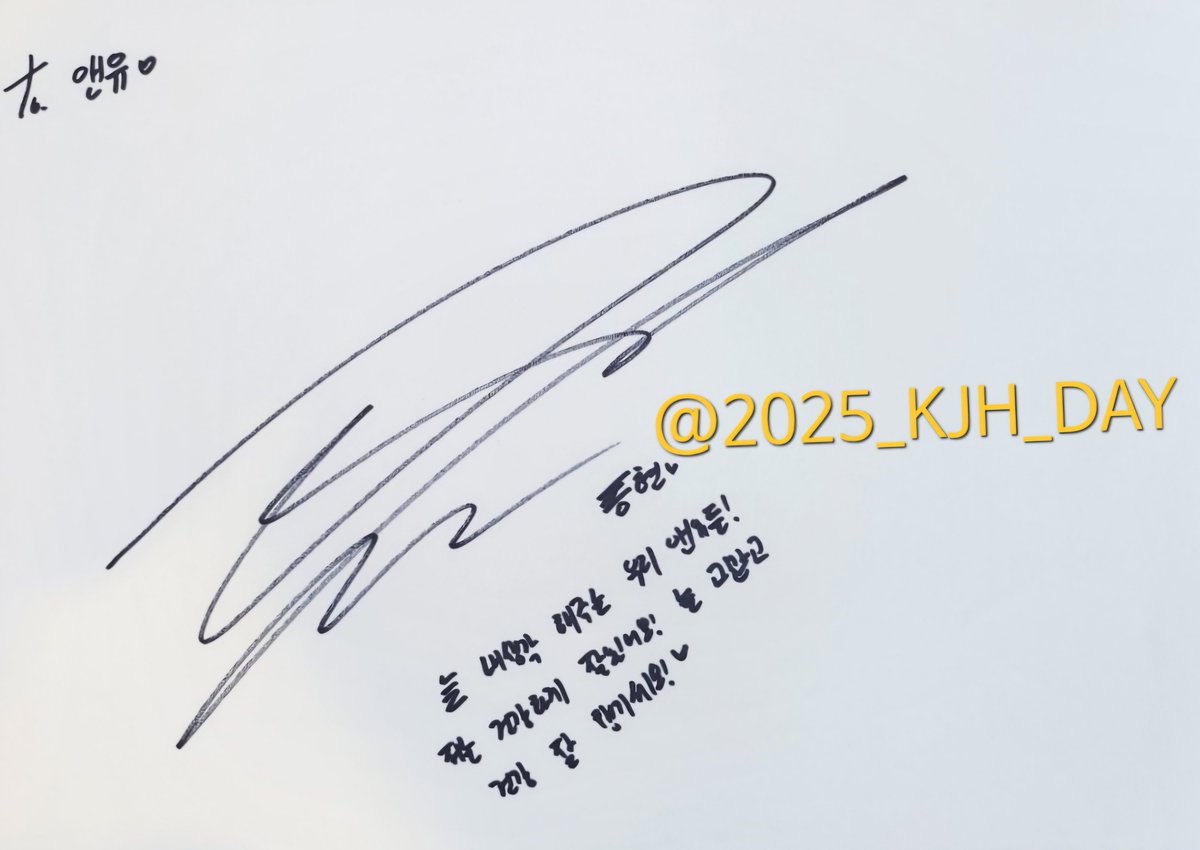 to. 앤유♡
@2025_KJH_DAY
종현♡
늘 내생각 해주는 우리 앤유들!
저는 건강하게 잘있어요! 늘 고맙고
건강 잘 챙기세요!♡